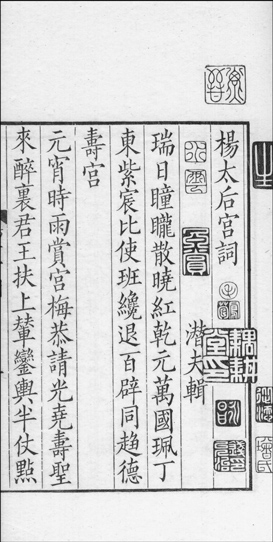 楊太后宮詞
潛夫輯
瑞日曈曨散曉紅乾元萬國珮丁
東紫宸北使班纔退百辟同趨德
壽宮
元宵時雨賞宮梅恭請光堯壽聖
來醉裏君王扶上輦鑾輿半仗點